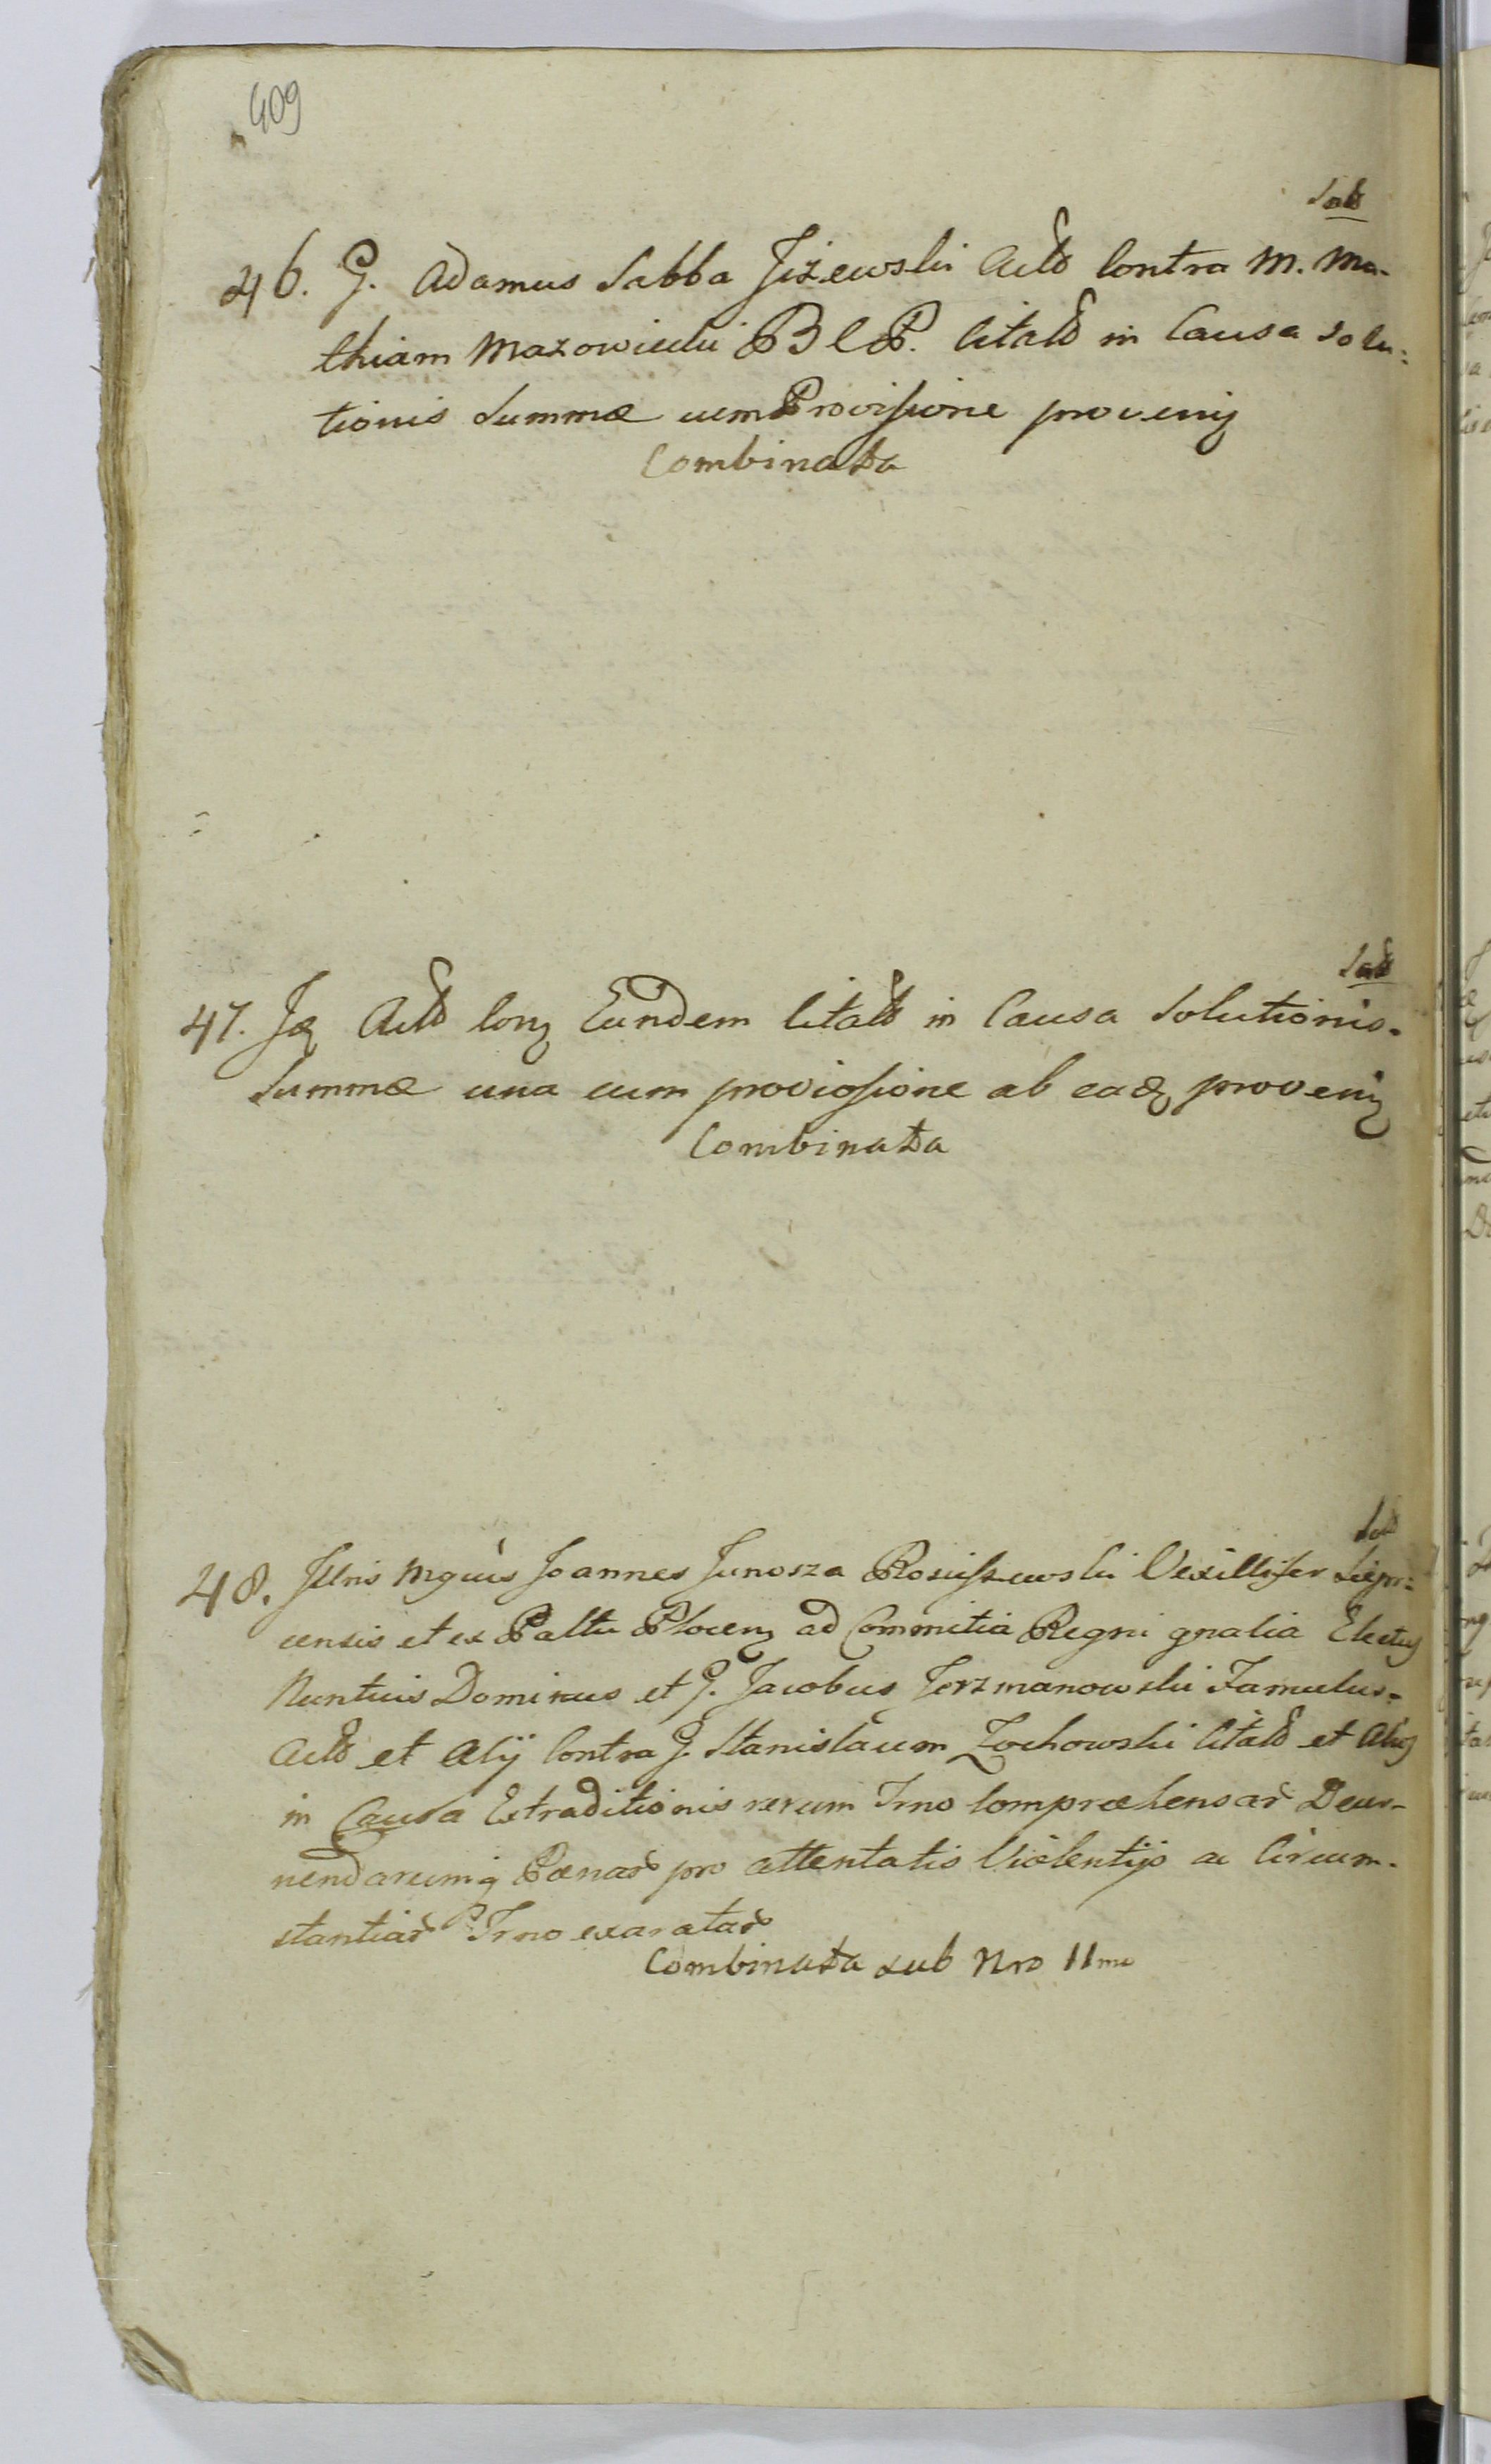 409
46. G. Adamus Sabba Jiżewski Actor Contra M. Ma-
thiam Mazowiecki B C P. Citatu in Causa Solu-
tionis Summæ cum Provisione proveniq
Combinata
47. Actor Conq Eundem Citatu in Causa Solutionis
Summæ una cum provissione ab eadq proveniq
Combinata
48. Illris Mgcus Joannes Junosza Rosciszewski Vexillifer
censis et ex Paltu Plocenq ad Commitia Regni gnalia Electus
Nuntius Dominus et G. Jacobus Jerzmanowski Famulus
Actor et Alij Contra G. Stanislaum Zochowski Citatu et Alios
in Causa Extraditionis rerum Trno Compræhensar Decer-
nendarumq Pœnar pro attentatis Violentijs ac Circum-
stantiar Trno exaratar
Combinata sub Nro 11mo